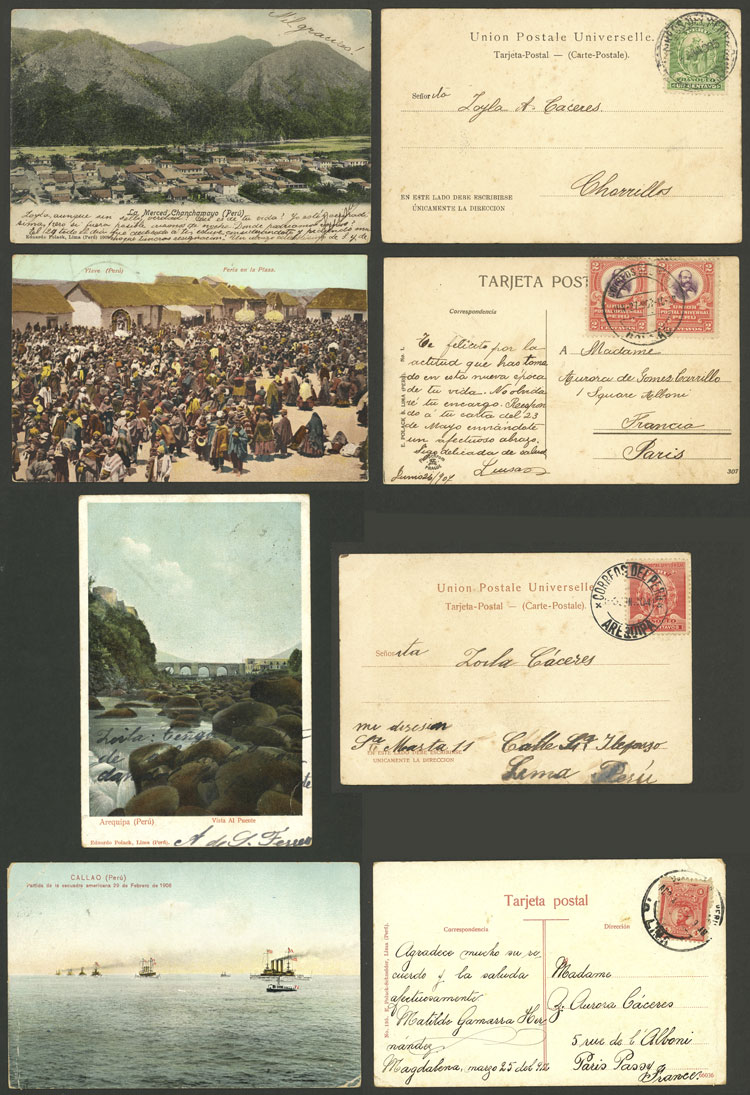 Union Postale Universelle.
Tarjeta-Postal — (Carte-Postale).
Señorita
Zoyla A. Caceres.
Chorrillos
EN ESTE LADO DEBE ESCRIBIRSE
ÚNICAMENTE LA DIRECCION
La Merced, Chanchamayo (Perú)
Zoyla, aunque sin
de tu vida! Yo
Eduardo Polack, Lima (Perú)
Ylave. (Perú)
Feria en la Plaza.
TARJETA POS
Correspondencia
Te felicito por la
actitud que has toma
do en esta nueva época
de tu vida. No olvida
ré tu encargo. Respon
do á tu carta del 23
de Mayo enviándote
un afectuoso abrazo.
Sigo delicada de salud
Luisa
Junio 26/907
E. POLACK S. LIMA (PERÚ). No. 1.
A Madame
Aurora de Gomez Carrillo
1 Square Alboni
Francia
Paris
307
Arequipa (Perú)
Vista Al Puente
Eduardo Polack, Lima (Perú),
Zoila: Tengo
de
A de S. Ferrer
Union Postale Universelle
Tarjeta-Postal — (Carte-Postale).
CORREOS DEL PERU
AREQUIPA
Señorita
Zoila Cáceres
mi direcion
Sta Marta 11
Calle Sn Ildefonso
Lima Perú
EN ESTE LADO DEBE ESCRIBIRSE
UNICAMENTE LA DIRECCION
CALLAO (Perú)
Partida de la escuadra americana 29 de Febrero de 1908
Tarjeta postal
Correspondencia
Dirección
Agradece mucho su re
cuerdo y la saluda
afectuosamente
Matilde Gamarra Her
nández
Magdalena, marzo 25 del 912
No. 186. E. Polack-Schneider, Lima (Perú).
Madame
Z. Aurora Cáceres
5 rue de l'Alboni
Paris Passy
France.